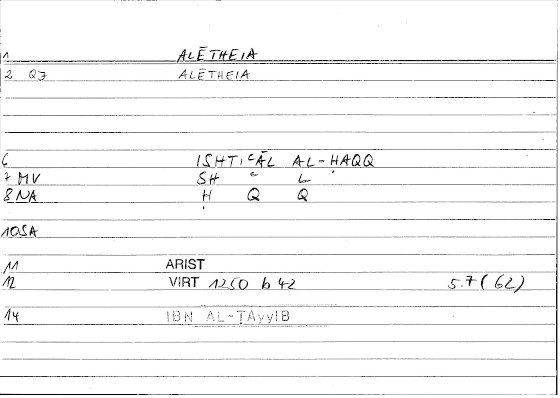 1 ALĒTHEIA
2 Q7 ALĒTHEIA
6 ISHTIʿĀL AL-ḤAQQ
7 MV SH ʿ L
8 NA Ḥ Q Q
10 SA
11 ARIST
12 VIRT 1250 b 42 5.7 (62)
14 IBN AL-ṬAyyIB